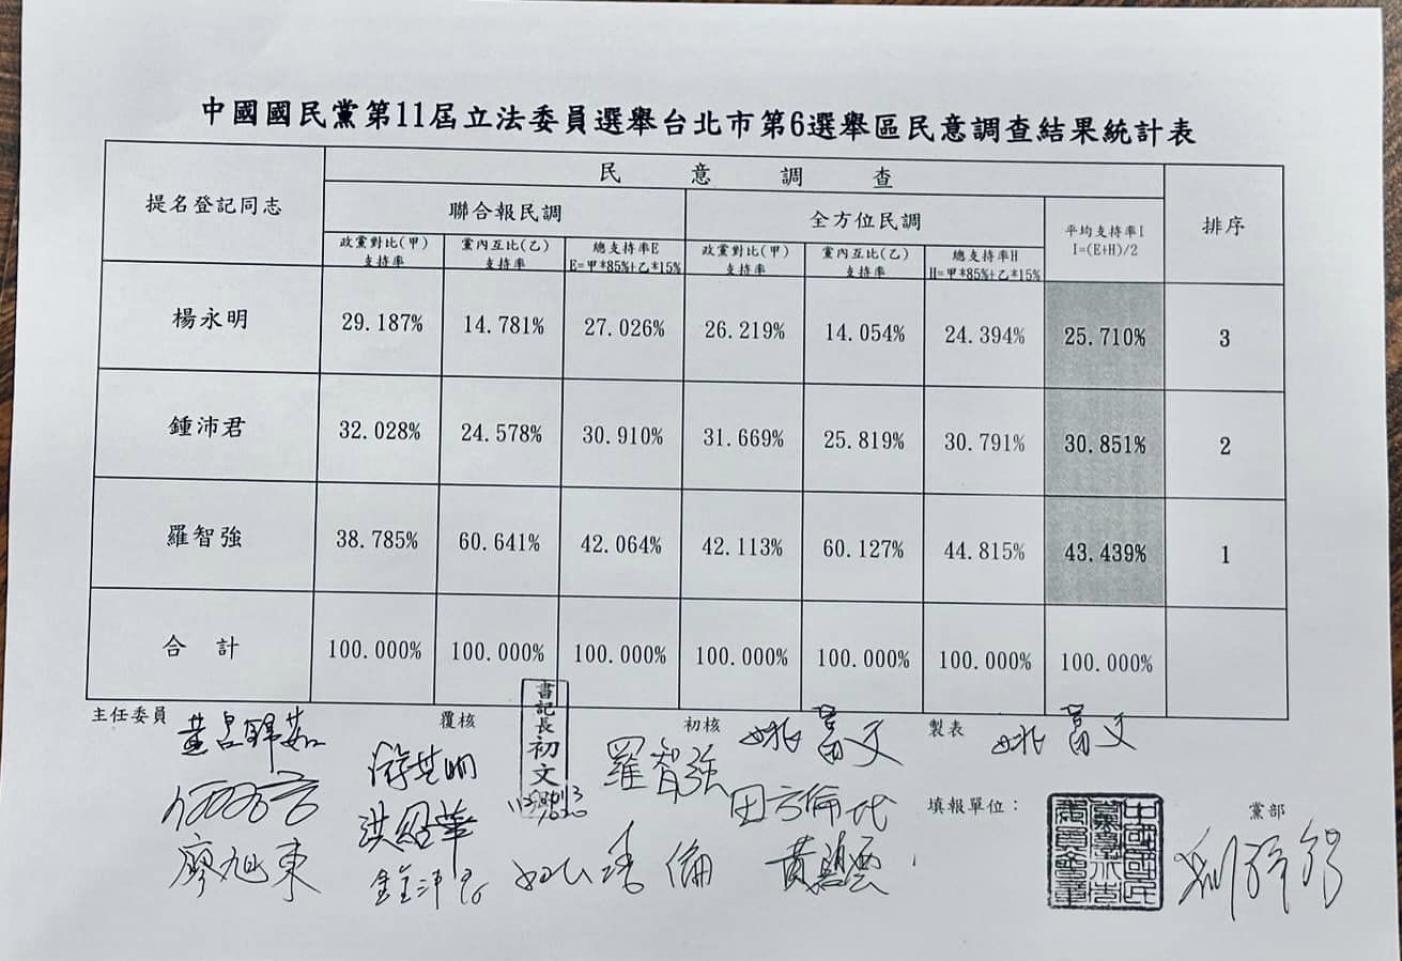 中國國民黨第11屆立法委員選舉台北市第6選舉區民意調查結果統計表
提名登記同志 民意調查 排序
聯合報民調 全方位民調 平均支持率I I=(E+H)/2
政黨對比(甲)支持率 黨內互比(乙)支持率 總支持率E E=甲*85%+乙*15% 政黨對比(甲)支持率 黨內互比(乙)支持率 總支持率H H=甲*85%+乙*15%
楊永明 29.187% 14.781% 27.026% 26.219% 14.054% 24.394% 25.710% 3
鍾沛君 32.028% 24.578% 30.910% 31.669% 25.819% 30.791% 30.851% 2
羅智強 38.785% 60.641% 42.064% 42.113% 60.127% 44.815% 43.439% 1
合計 100.000% 100.000% 100.000% 100.000% 100.000% 100.000% 100.000%
主任委員 黃呂錦茹 覆核 書記長初文 初核 姚富文 製表 姚富文
游芝明 羅智強
洪紹華 田方倫代 填報單位： 中國國民黨臺北市委員會章 黨部
廖旭東 鍾沛君 倫 黃碧雲